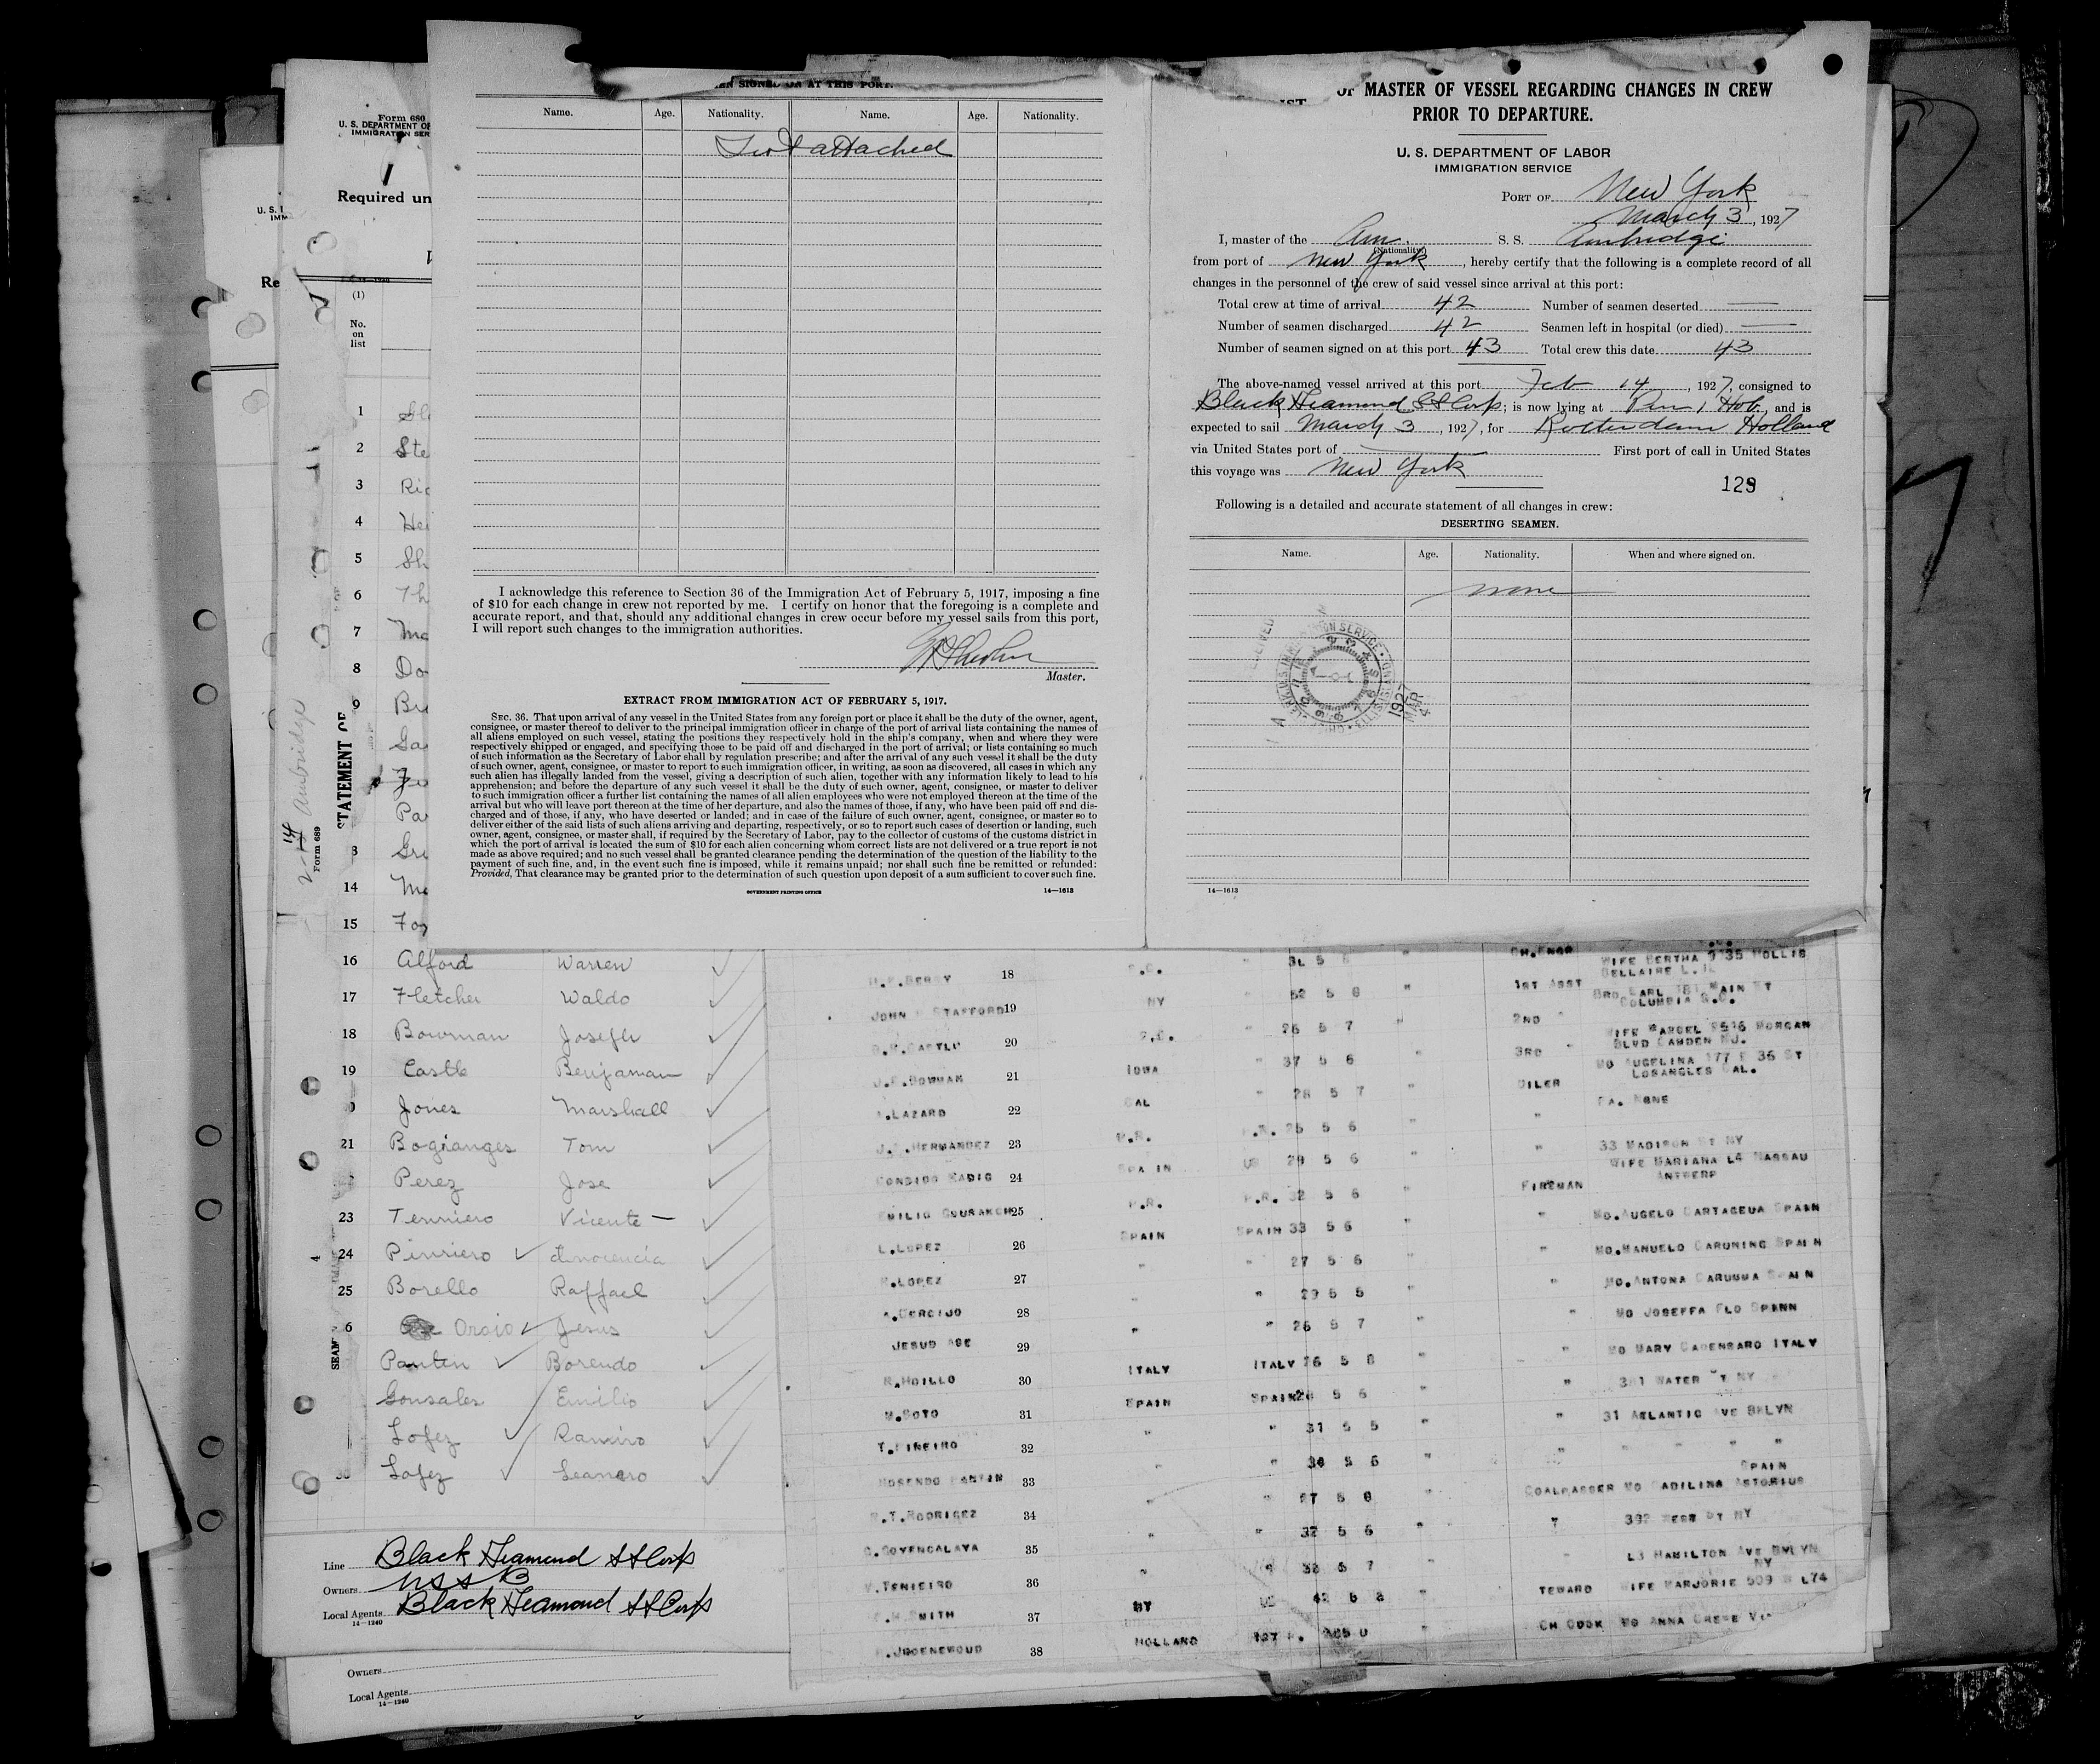 Form 680
U. S. DEPARTMENT OF
IMMIGRATION SER
Required un
U. S.
IMM
Re
(1)
No.
on
list
1
2 Ste
3 Ric
4 Hei
5 Sh
6 Th
7 Mo
8 Do
9 Bu
Ga
Pa
Gre
14 Mc
15 Fo
STATEMENT OF
2-14 Ambridge
Form 689
SIGNED ON AT THIS PORT.
Name. Age. Nationality. Name. Age. Nationality.
List attached
I acknowledge this reference to Section 36 of the Immigration Act of February 5, 1917, imposing a fine
of $10 for each change in crew not reported by me. I certify on honor that the foregoing is a complete and
accurate report, and that, should any additional changes in crew occur before my vessel sails from this port,
I will report such changes to the immigration authorities.
Master.
EXTRACT FROM IMMIGRATION ACT OF FEBRUARY 5, 1917.
SEC. 36. That upon arrival of any vessel in the United States from any foreign port or place it shall be the duty of the owner, agent,
consignee, or master thereof to deliver to the principal immigration officer in charge of the port of arrival lists containing the names of
all aliens employed on such vessel, stating the positions they respectively hold in the ship's company, when and where they were
respectively shipped or engaged, and specifying those to be paid off and discharged in the port of arrival; or lists containing so much
of such information as the Secretary of Labor shall by regulation prescribe; and after the arrival of any such vessel it shall be the duty
of such owner, agent, consignee, or master to report to such immigration officer, in writing, as soon as discovered, all cases in which any
such alien has illegally landed from the vessel, giving a description of such alien, together with any information likely to lead to his
apprehension; and before the departure of any such vessel it shall be the duty of such owner, agent, consignee, or master to deliver
to such immigration officer a further list containing the names of all alien employees who were not employed thereon at the time of the
arrival but who will leave port thereon at the time of her departure, and also the names of those, if any, who have been paid off and dis-
charged and of those, if any, who have deserted or landed; and in case of the failure of such owner, agent, consignee, or master so to
deliver either of the said lists of such aliens arriving and departing, respectively, or so to report such cases of desertion or landing, such
owner, agent, consignee, or master shall, if required by the Secretary of Labor, pay to the collector of customs of the customs district in
which the port of arrival is located the sum of $10 for each alien concerning whom correct lists are not delivered or a true report is not
made as above required; and no such vessel shall be granted clearance pending the determination of the question of the liability to the
payment of such fine, and, in the event such fine is imposed, while it remains unpaid; nor shall such fine be remitted or refunded:
Provided, That clearance may be granted prior to the determination of such question upon deposit of a sum sufficient to cover such fine.
GOVERNMENT PRINTING OFFICE 14—1613
OF MASTER OF VESSEL REGARDING CHANGES IN CREW
PRIOR TO DEPARTURE.
U. S. DEPARTMENT OF LABOR
IMMIGRATION SERVICE
PORT OF New York
March 3, 1927
I, master of the Am. S. S. Ambridge
(Nationality)
from port of New York, hereby certify that the following is a complete record of all
changes in the personnel of the crew of said vessel since arrival at this port:
Total crew at time of arrival 42 Number of seamen deserted —
Number of seamen discharged 42 Seamen left in hospital (or died) —
Number of seamen signed on at this port 43 Total crew this date 43
The above-named vessel arrived at this port Feb 14, 1927, consigned to
Black Diamond SS Corp; is now lying at Pier 1 Hob, and is
expected to sail March 3, 1927, for Rotterdam Holland
via United States port of — First port of call in United States
this voyage was New York
129
Following is a detailed and accurate statement of all changes in crew:
DESERTING SEAMEN.
Name. Age. Nationality. When and where signed on.
none
1927
MAR
4
14—1613
16 Alford Warren
17 Fletcher Waldo
18 Bowman Joseph
19 Castle Benjaman
Jones Marshall
21 Bogianges Tom
Perez Jose
23 Tenniero Vicente
24 Pinniero Innocencia
25 Borello Raffael
6 Oroio Jesus
Panten Borendo
Gonsales Emilio
Lopez Ramiro
30 Lopez Leandro
SEAM
Line Black Diamond SS Corp
Owners U S S B
Local Agents Black Diamond SS Corp
14—1240
Owners
Local Agents
14—1240
BERRY 18 CH.ENGR WIFE BERTHA HOLLIS
BELLAIRE L.I.
JOHN STAFFORD 19 NY 52 5 8 " 1ST ASST BRO EARL MAIN ST
COLUMBIA S.C.
20 26 5 7 " 2ND " WIFE MORGAN
BLVD CAMDEN NJ.
J.F.BOWMAN 21 IOWA " 37 5 6 " 3RD " MO AUGELINA 177 E 36 ST
LOSANGLES CAL.
A.LAZARD 22 CAL " 28 5 7 " OILER FA. NONE
J.C.HERMANDEZ 23 P.R. P.R. 25 5 6 " " 33 MADISON ST NY
CONDIDO RADIO 24 SPAIN US 29 5 6 " " WIFE MARIANA L4 NASSAU
ANTWERP
EMILIO 25 P.R. P.R. 32 5 6 " FIREMAN
L.LOPEZ 26 SPAIN SPAIN 33 5 6 " MO.AUGELO CARTAGEUA SPAIN
R.LOPEZ 27 " " 27 5 6 " MO.MANUELO CARUNING SPAIN
A.CERCIJO 28 " " 29 5 5 " MO.ANTONA SPAIN
JESUD ASE 29 " " 26 5 7 " MO JOSEFFA FLO SPANN
30 ITALY ITALY 26 5 8 " " MO MARY CADENSARO ITALY
M.SOTO 31 SPAIN SPAIN 26 5 6 " " 381 WATER ST NY
T.PINEIRO 32 " " 31 5 5 " " 31 ATLANTIC AVE BKLYN
ROSENDO PANTIN 33 " " 34 5 6 " " " " " "
R.T.RODRIGEZ 34 " " 27 5 8 " COALPASSER MO ASTORIUS SPAIN
C.GOYENCALAYA 35 " " 32 5 6 " " 392 WEST ST NY
V.TENIEIRO 36 " " 32 5 7 HAMILTON AVE BKLYN
NY
SMITH 37 NY US 42 5 8 TEWARD WIFE MARJORIE 509
GROENEWOUD 38 HOLLAND " CH COOK MO ANNA